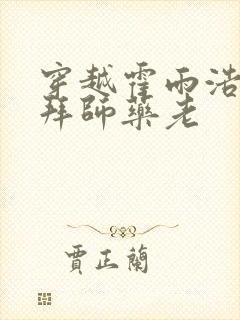 穿越霍雨浩
拜師藥老
賈正蘭